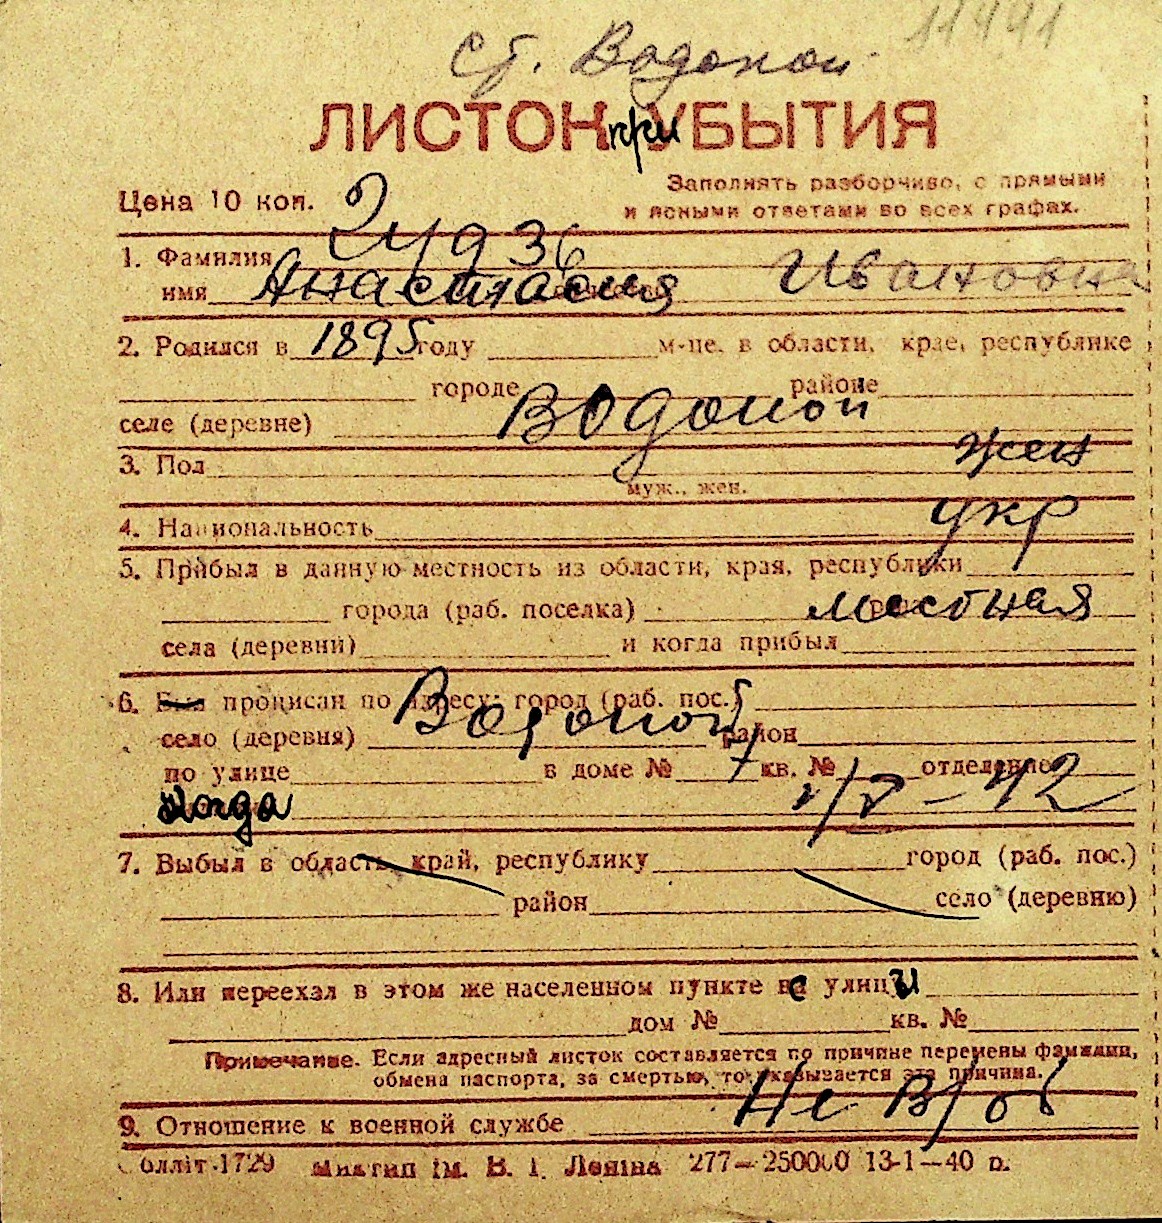 11491
ст. Водопой
ЛИСТОК при УБЫТИЯ
Цена 10 коп.
Заполнять разборчиво, с прямыми
и ясными ответами во всех графах.
1. Фамилия Гудзь
имя Анастасия Ивановна
2. Родился в 1895 году м-це, в области, крае, республике
городе районе
селе (деревне) Водопой
3. Пол жен
муж., жен.
4. Национальность укр
5. Прибыл в данную местность из области, края, республики
города (раб. поселка) местная
села (деревни) и когда прибыл
6. Был прописан по адресу: город (раб. пос.)
село (деревня) Водопой район
по улице в доме № кв. № отделение
когда 42
7. Выбыл в область, край, республику город (раб. пос.)
район село (деревню)
8. Или переехал в этом же населенном пункте с улицы
дом № кв. №
Примечание. Если адресный листок составляется по причине перемены фамилии,
обмена паспорта, за смертью, то указывается эта причина.
9. Отношение к военной службе Не в/об
Обlліт 1729 Миктип ім. В. І. Леніна 277—250000 13-1—40 р.